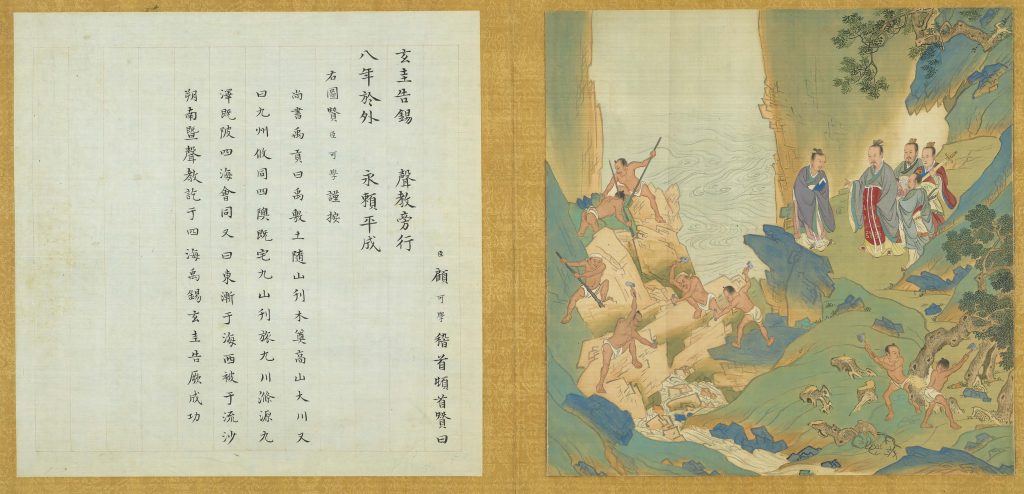 臣顧可學稽首頓首贊曰
玄圭告錫　聲教旁行
八年於外　永賴平成
右圖贊臣可學謹按
尚書禹貢曰禹敷土隨山刊木奠高山大川又
曰九州攸同四隩既宅九山刊旅九川滌源九
澤既陂四海會同又曰東漸于海西被于流沙
朔南暨聲教訖于四海禹錫玄圭告厥成功